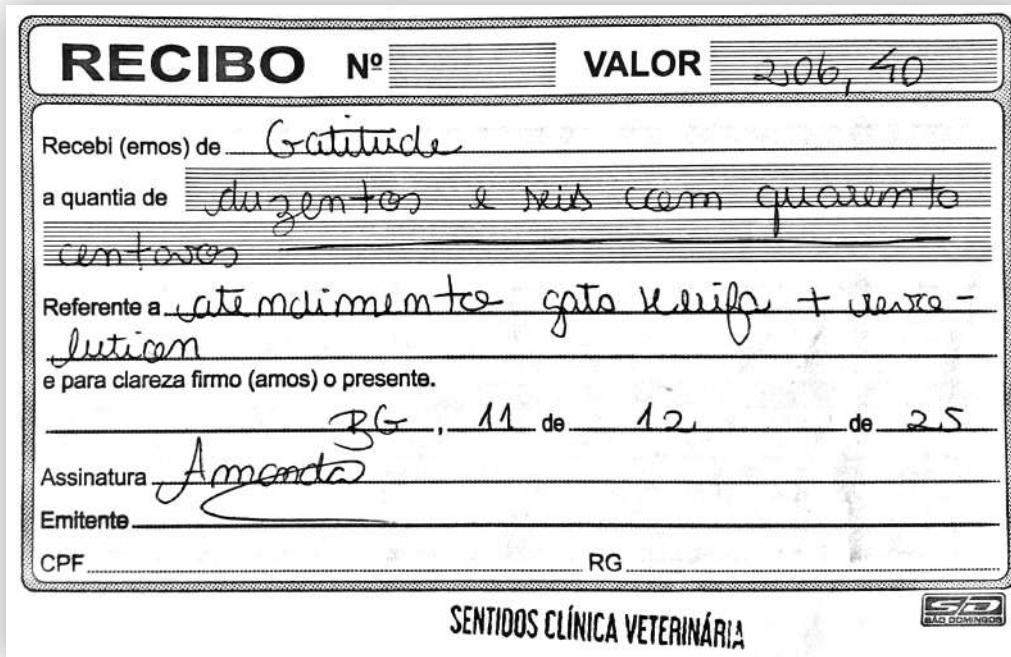 RECIBO Nº VALOR 206,40
Recebi (emos) de Gatitude
a quantia de duzentos e seis com quarenta
centavos
Referente a atendimento gato +
e para clareza firmo (amos) o presente.
BG, 11 de 12 de 25
Assinatura Amanda
Emitente
CPF RG
SENTIDOS CLÍNICA VETERINÁRIA
SD
SÃO DOMINGOS